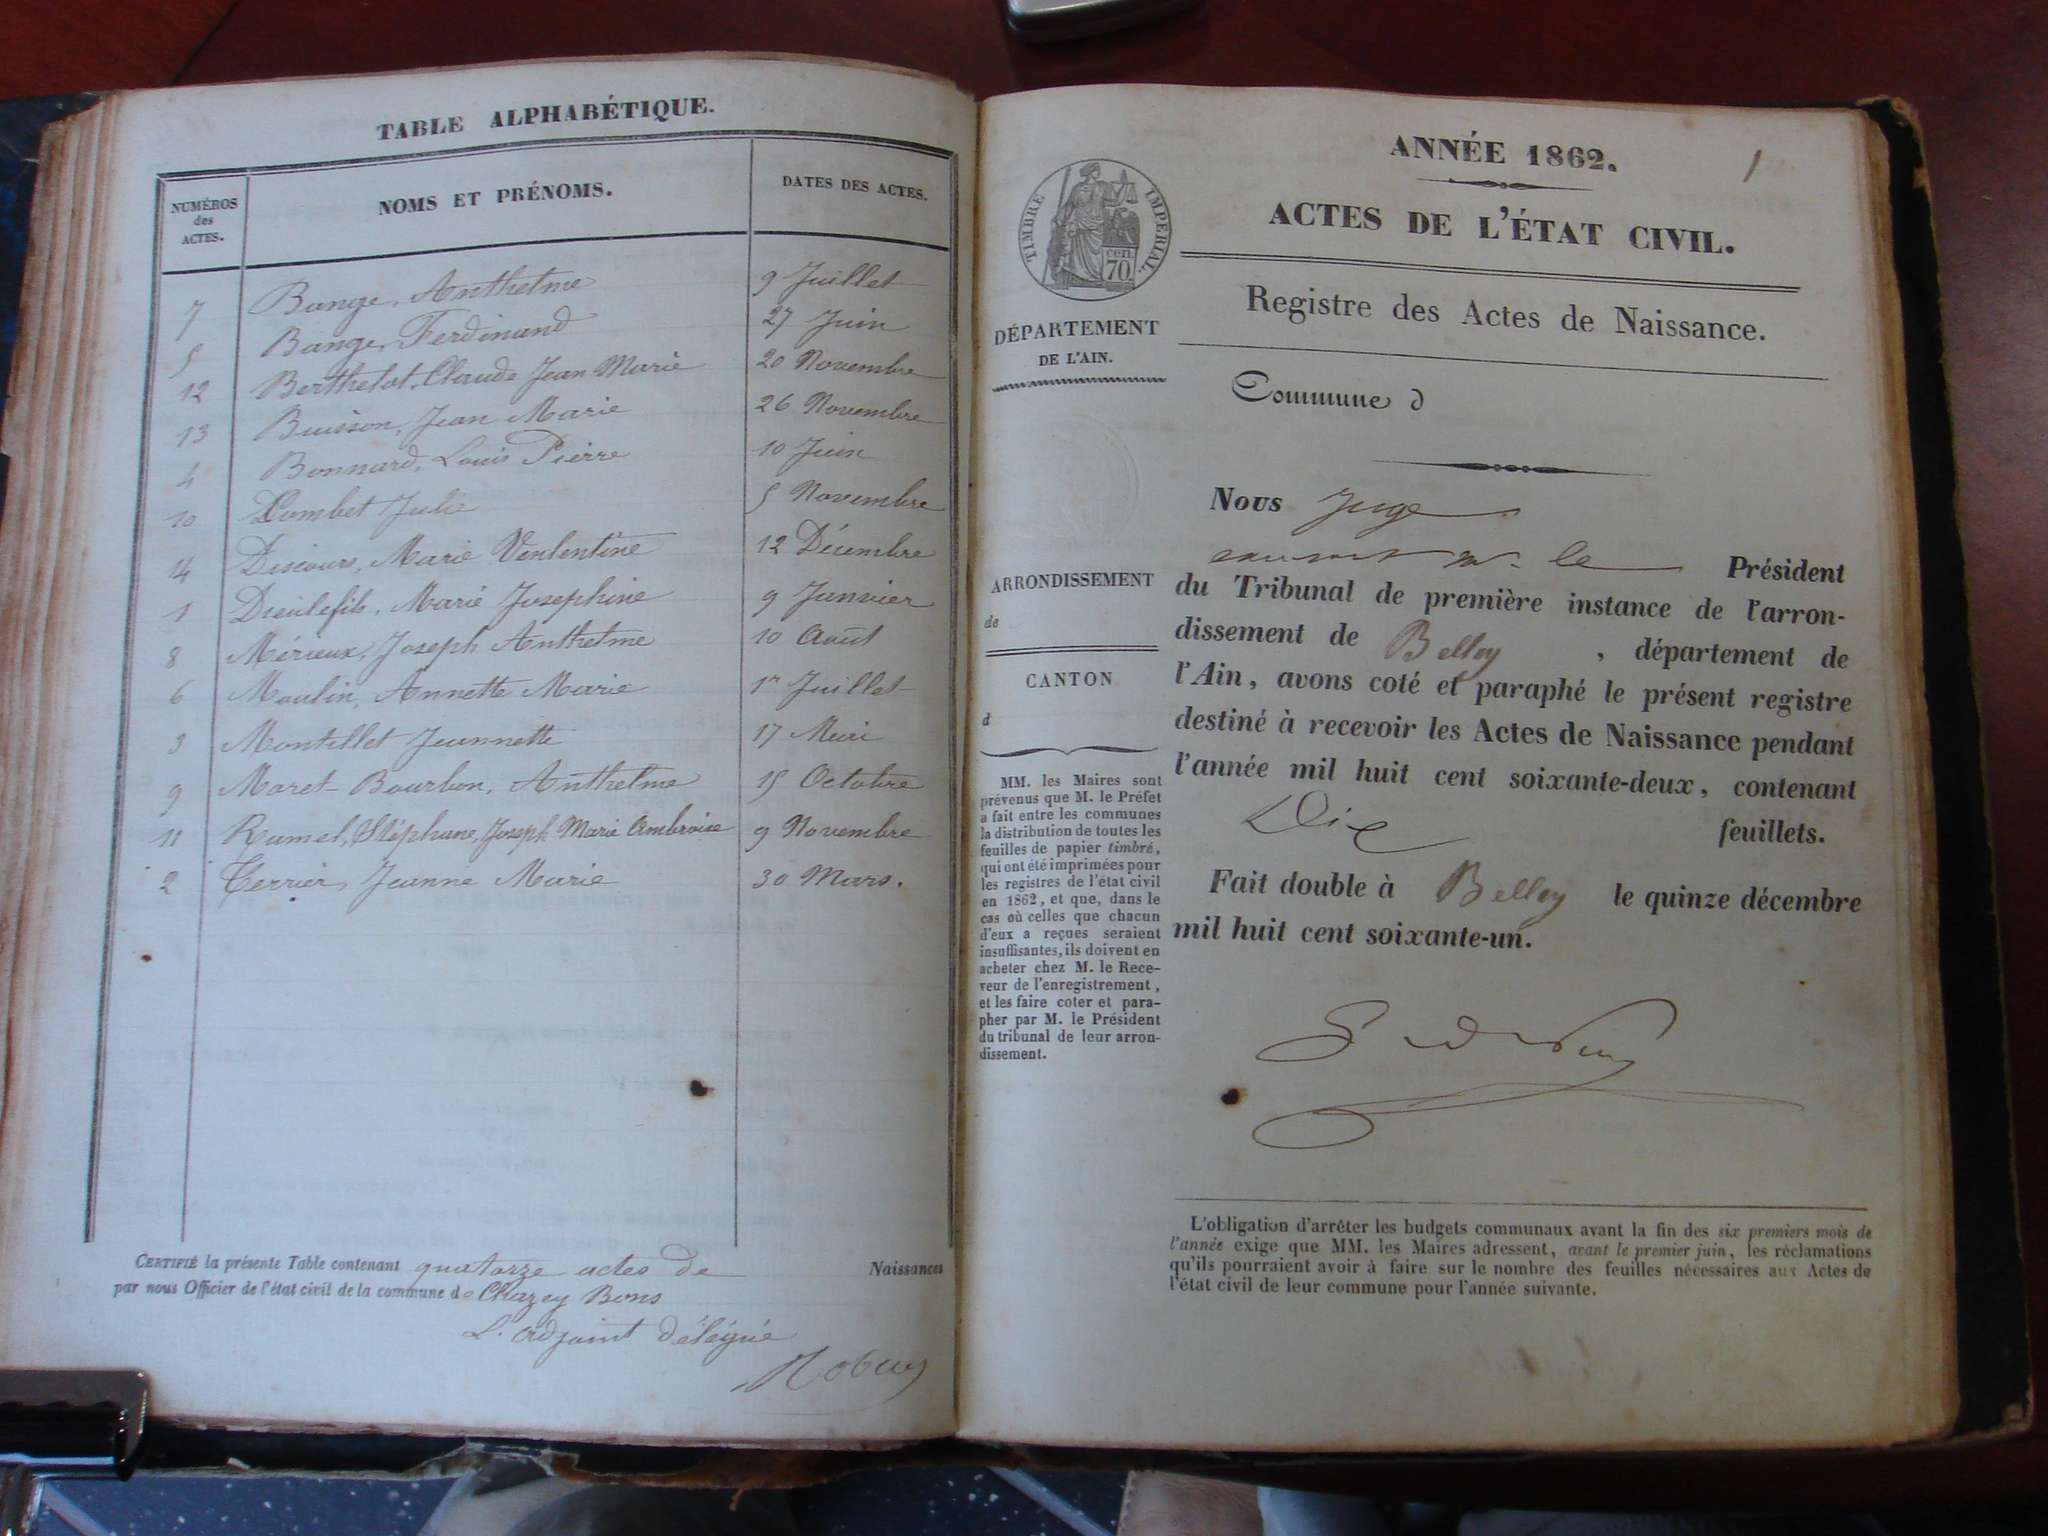 TABLE ALPHABÉTIQUE.
NUMÉROS
des
ACTES.
NOMS ET PRÉNOMS.
DATES DES ACTES.
7 Bange, Anthelme 9 Juillet
5 Bange, Ferdinand 27 Juin
12 Berthelot, Claude Jean Marie 20 Novembre
13 Buisson, Jean Marie 26 Novembre
4 Bonnard, Louis Pierre 10 Juin
10 Julie 5 Novembre
14 Discours, Marie Venlentine 12 Décembre
1 Dieulefils, Marie Josephine 9 Janvier
8 Mérieux, Joseph Anthelme 10 Août
6 Moulin, Annette Marie 1er Juillet
3 Montillet Jeannette 17 Mai
9 Maret-Bourbon, Anthelme 15 Octobre
11 Rumel, Stéphane, Joseph Marie Ambroise 9 Novembre
2 Terrier, Jeanne Marie 30 Mars.
CERTIFIÉ la présente Table contenant quatorze actes de Naissances
par nous Officier de l'état civil de la commune de Chazey Bons
L'adjoint délégué
1
ANNÉE 1862.
ACTES DE L'ÉTAT CIVIL.
Registre des Actes de Naissance.
TIMBRE IMPÉRIAL.
cen.
70
DÉPARTEMENT
DE L'AIN.
Commune d
ARRONDISSEMENT
de
CANTON
d
MM. les Maires sont
prévenus que M. le Préfet
a fait entre les communes
la distribution de toutes les
feuilles de papier timbré,
qui ont été imprimées pour
les registres de l'état civil
en 1862, et que, dans le
cas où celles que chacun
d'eux a reçues seraient
insuffisantes, ils doivent en
acheter chez M. le Rece-
veur de l'enregistrement,
et les faire coter et para-
pher par M. le Président
du tribunal de leur arron-
dissement.
Nous Juge
le Président
du Tribunal de première instance de l'arron-
dissement de Belley, département de
l'Ain, avons coté et paraphé le présent registre
destiné à recevoir les Actes de Naissance pendant
l'année mil huit cent soixante-deux, contenant
Dix feuillets.
Fait double à Belley le quinze décembre
mil huit cent soixante-un.
L'obligation d'arrêter les budgets communaux avant la fin des six premiers mois de
l'année exige que MM. les Maires adressent, avant le premier juin, les réclamations
qu'ils pourraient avoir à faire sur le nombre des feuilles nécessaires aux Actes de
l'état civil de leur commune pour l'année suivante.